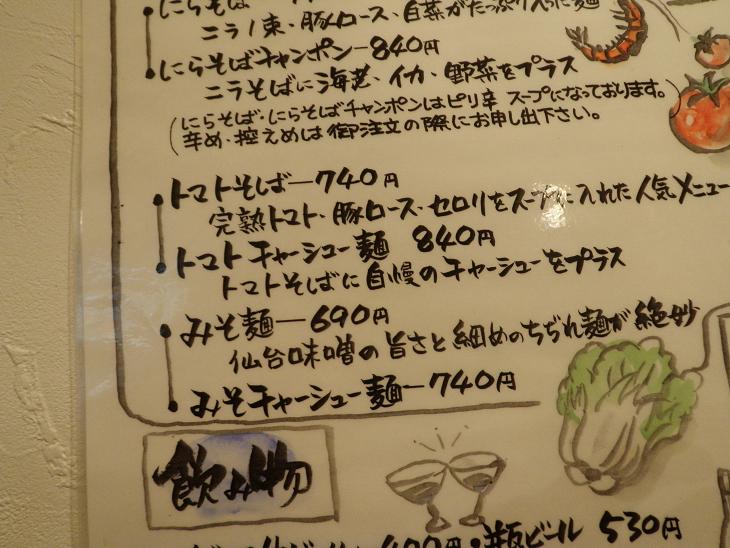 にらそば
ニラ1束・豚バラロース・白菜がたっぷり入った麺
にらそばチャンポン—840円
ニラそばに海老・イカ・野菜をプラス
(にらそば・にらそばチャンポンはピリ辛スープになっております。)
辛め・控えめは御注文の際にお申し出下さい。
トマトそば—740円
完熟トマト・豚ロース・セロリをスープに入れた人気メニュー
トマトチャーシュー麺 840円
トマトそばに自慢のチャーシューをプラス
みそ麺—690円
仙台味噌の旨さと細めのちぢれ麺が絶妙
みそチャーシュー麺—740円
飲み物
瓶ビール 530円